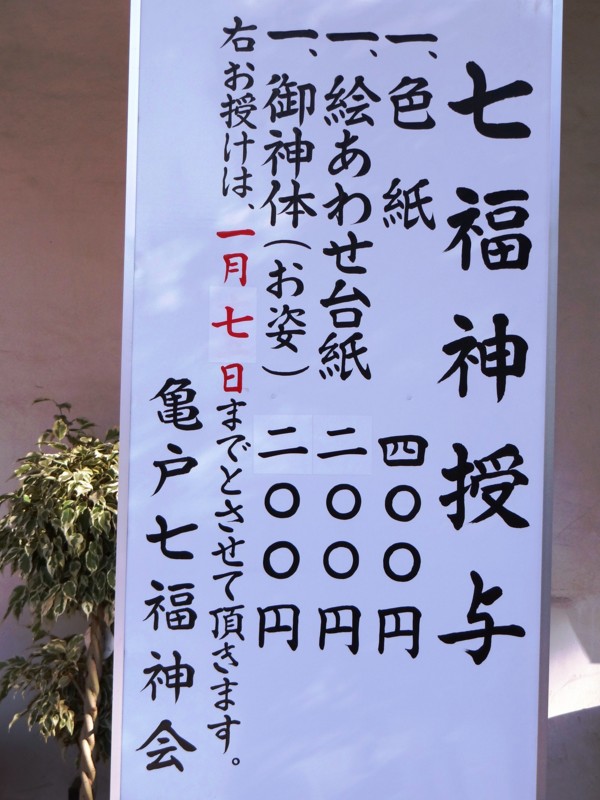 七福神授与
一、色紙 四〇〇円
一、絵あわせ台紙 二〇〇円
一、御神体(お姿) 二〇〇円
右お授けは、一月七日までとさせて頂きます。
亀戸七福神会